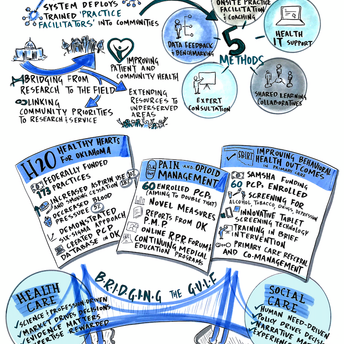 SYSTEM DEPLOYS
TRAINED 'PRACTICE
FACILITATORS' INTO COMMUNITIES
ONSITE PRACTICE
FACILITATION
& COACHING
DATA FEEDBACK
& BENCHMARKING
HEALTH
IT SUPPORT
5
METHODS
EXPERT
CONSULTATION
SHARED LEARNING
COLLABORATIVES
IMPROVING
PATIENT AND
COMMUNITY HEALTH
BRIDGING FROM
RESEARCH TO THE FIELD
LINKING
COMMUNITY PRIORITIES
TO RESEARCH & SERVICE
EXTENDING
RESOURCES TO
UNDERSERVED
AREAS
H2O HEALTHY HEARTS
FOR OKLAHOMA
FEDERALLY FUNDED
PRACTICES
INCREASED ASPIRIN USE
AND SMOKING CESSATION
DECREASED BLOOD
PRESSURE
DEMONSTRATED
SIX-SIGMA APPROACH
CREATED PCP
DATABASE IN OK
PAIN AND OPIOID
MANAGEMENT
60 ENROLLED PCP
(AIMING TO DOUBLE THAT)
NOVEL MEASURES
REPORTS FROM OK
P.M.P
ONLINE RPR FORUM
CONTINUING MEDICAL
EDUCATION PROGRAM
SBIRT IMPROVING BEHAVIORAL
HEALTH OUTCOMES
SAMSHA FUNDING
PCPs ENROLLED
SCREENING FOR
ALCOHOL, TOBACCO, DRUGS, DEPRESSION
INNOVATIVE TABLET
SCREENING TECHNOLOGY
TRAINING IN BRIEF
INTERVENTION
PRIMARY CARE REFERRAL
AND CO-MANAGEMENT
BRIDGING THE GULF
HEALTH
CARE
SCIENCE & PROFESSION-DRIVEN
MARKET DRIVES DECISIONS
EVIDENCE MATTERS
EXPERTISE REWARDED
SOCIAL
CARE
HUMAN NEED-DRIVEN
POLICY DRIVES DECIS
NARRATIVE MATT
EXPERIENCE